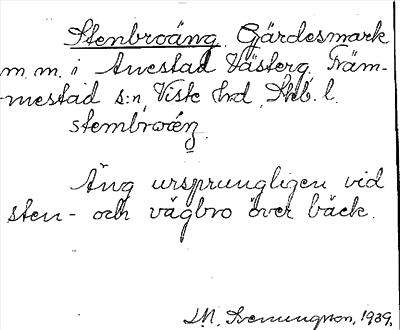 Stenbroäng. Gärdesmark
m. m. i Anestad Västerg. Främ-
mestad s:n, Viste hrd, Skb. l.
stembroéŋ.
Äng ursprungligen vid
sten- och vägbro över bäck.
1939.